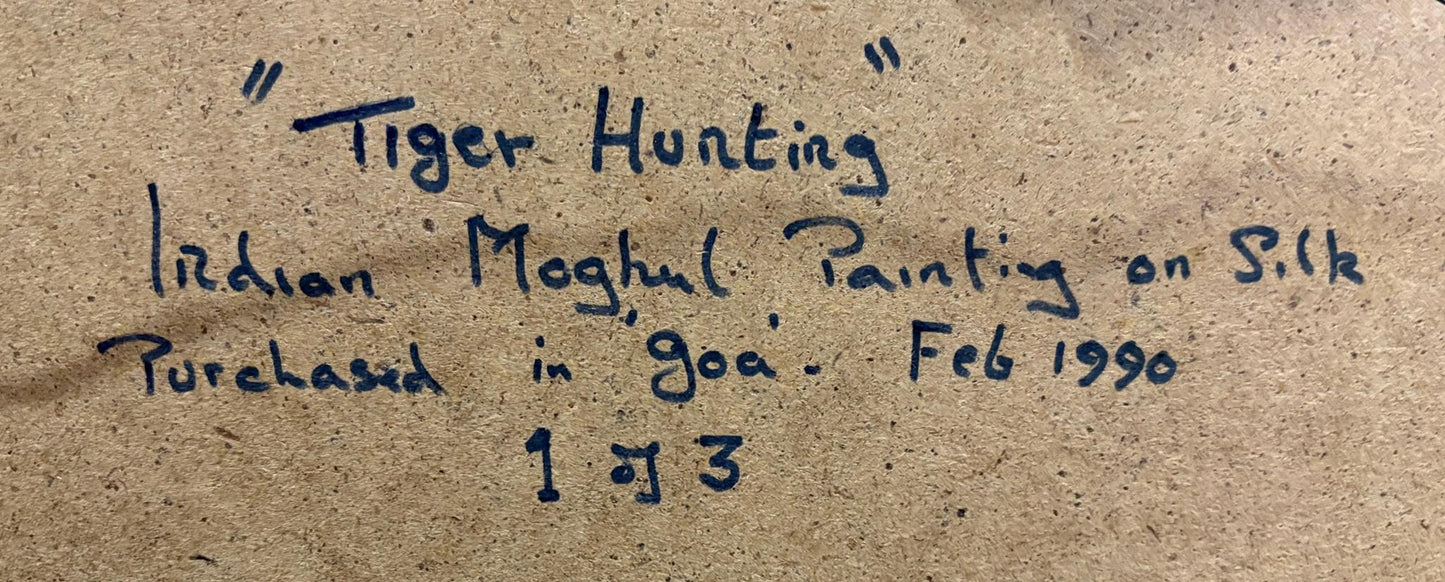 "Tiger Hunting"
Indian Moghul Painting on Silk
Purchased in 'goa'. Feb 1990
1 of 3